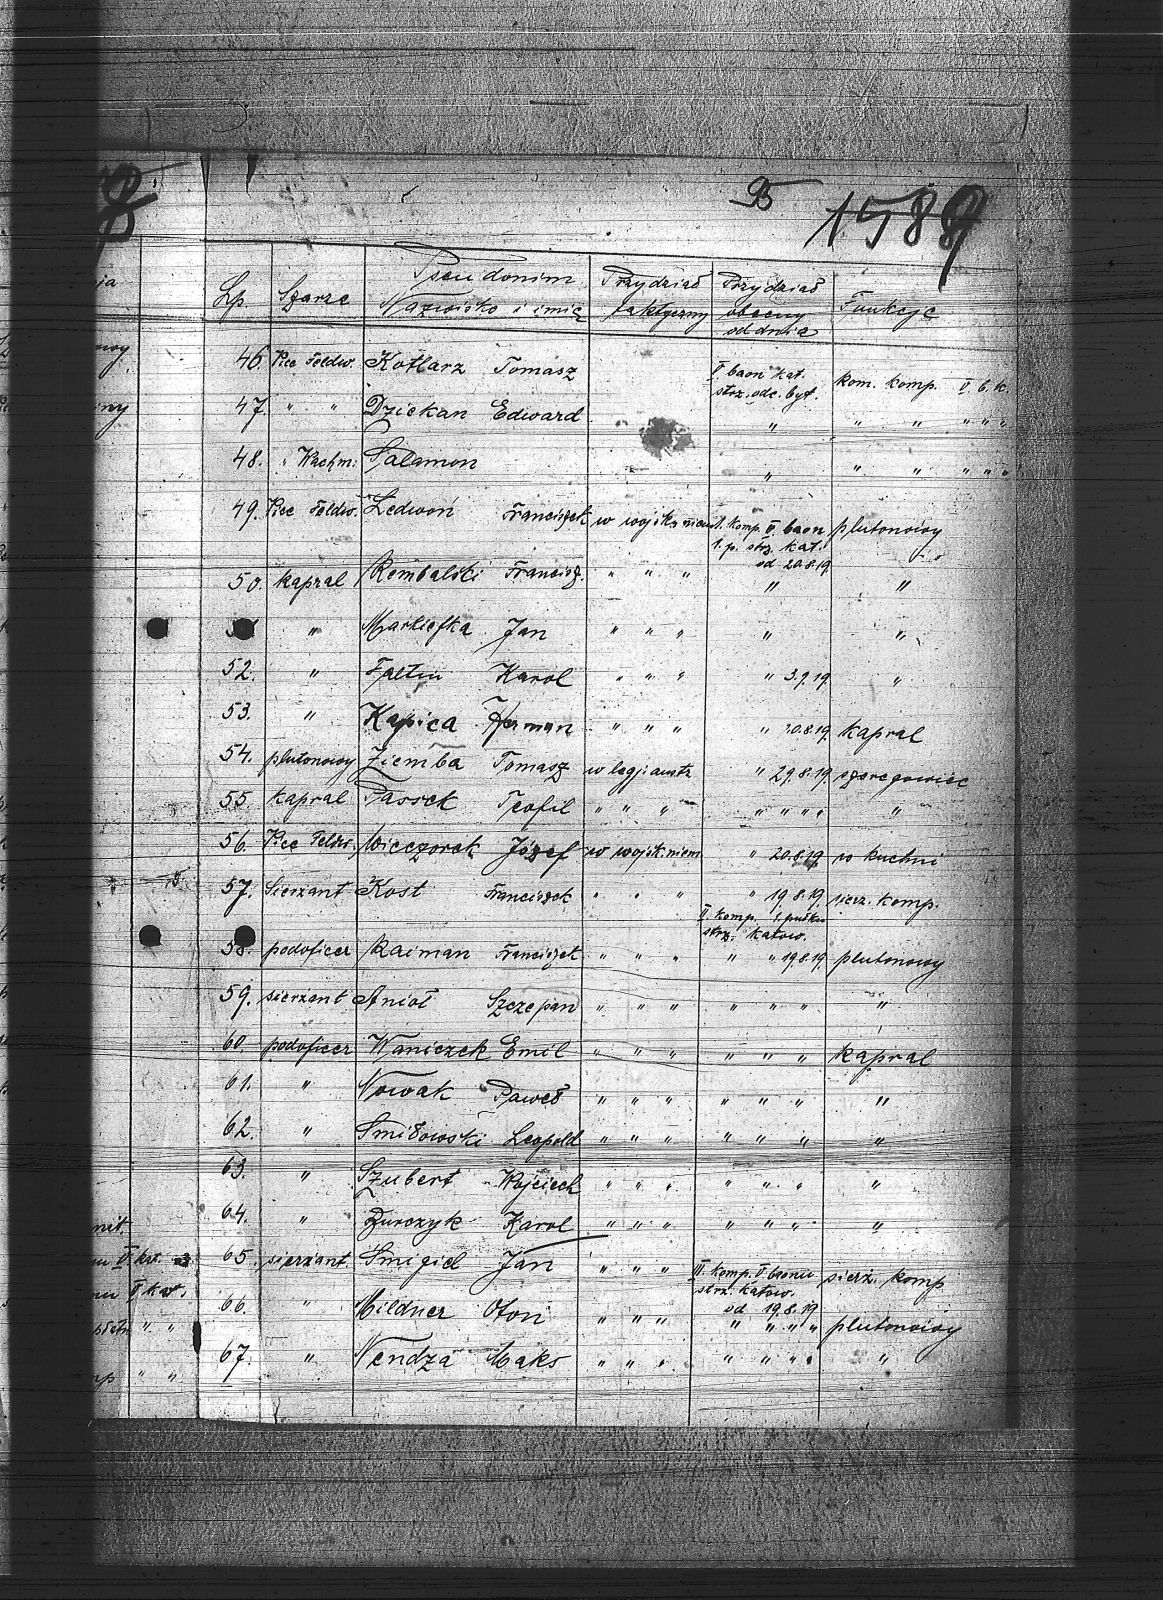 B 1589
Lp. Szarże Pseudonim Nazwisko i imię Przydział faktyczny Przydział obecny od dnia Funkcje
46. Vice Feldw. Kotlarz Tomasz II baon kat. strz. odc. byt. kom. komp. II b. k.
47. " " Dziekan Edward " " " " " "
48. " Wachm. Salamon " " " " " "
49. Vice Feldw. Ledwoń Franciszek w wojsk. niem. 1. komp. II baon 1. p. strz. kat. od 20.8.19 plutonowy
50. kapral Rembalski Francisz. " " " " "
" Markiefka Jan " " " " "
52. " Faltin Karol " " " " 3.9.19 "
53. " Kapica Herman " " " " 20.8.19 kapral
54. plutonowy Ziemba Tomasz w legji austr. " 29.8.19 szeregowiec
55. kapral Passek Teofil " " " " " " " "
56. Vice Feldw. Wieczorek Józef w wojsk. niem. " 20.8.19 w kuchni
57. Sierżant Kost Franciszek " " " " 19.8.19 sierz. komp.
58. podoficer Kaiman Franciszek " " " II komp. 1. pułku strz. katow. " " 19.8.19. plutonowy
59. sierżant Anioł Szczepan " " " " " " "
60. podoficer Waniczek Emil " " " " " " kapral
61. " Nowak Paweł " " " " " " "
62. " Smiłowski Leopold " " " " " " "
63. " Szubert Wojciech " " " " " " "
64. " Żurczyk Karol " " " " " " "
65. sierżant Smigiel Jan " " " III. komp. II baonu strz. katow. od 19.8.19 sierż. komp
66. " Mildner Oton " " " " " " " plutonowy
67. " Nendza Maks " " " " " " " "